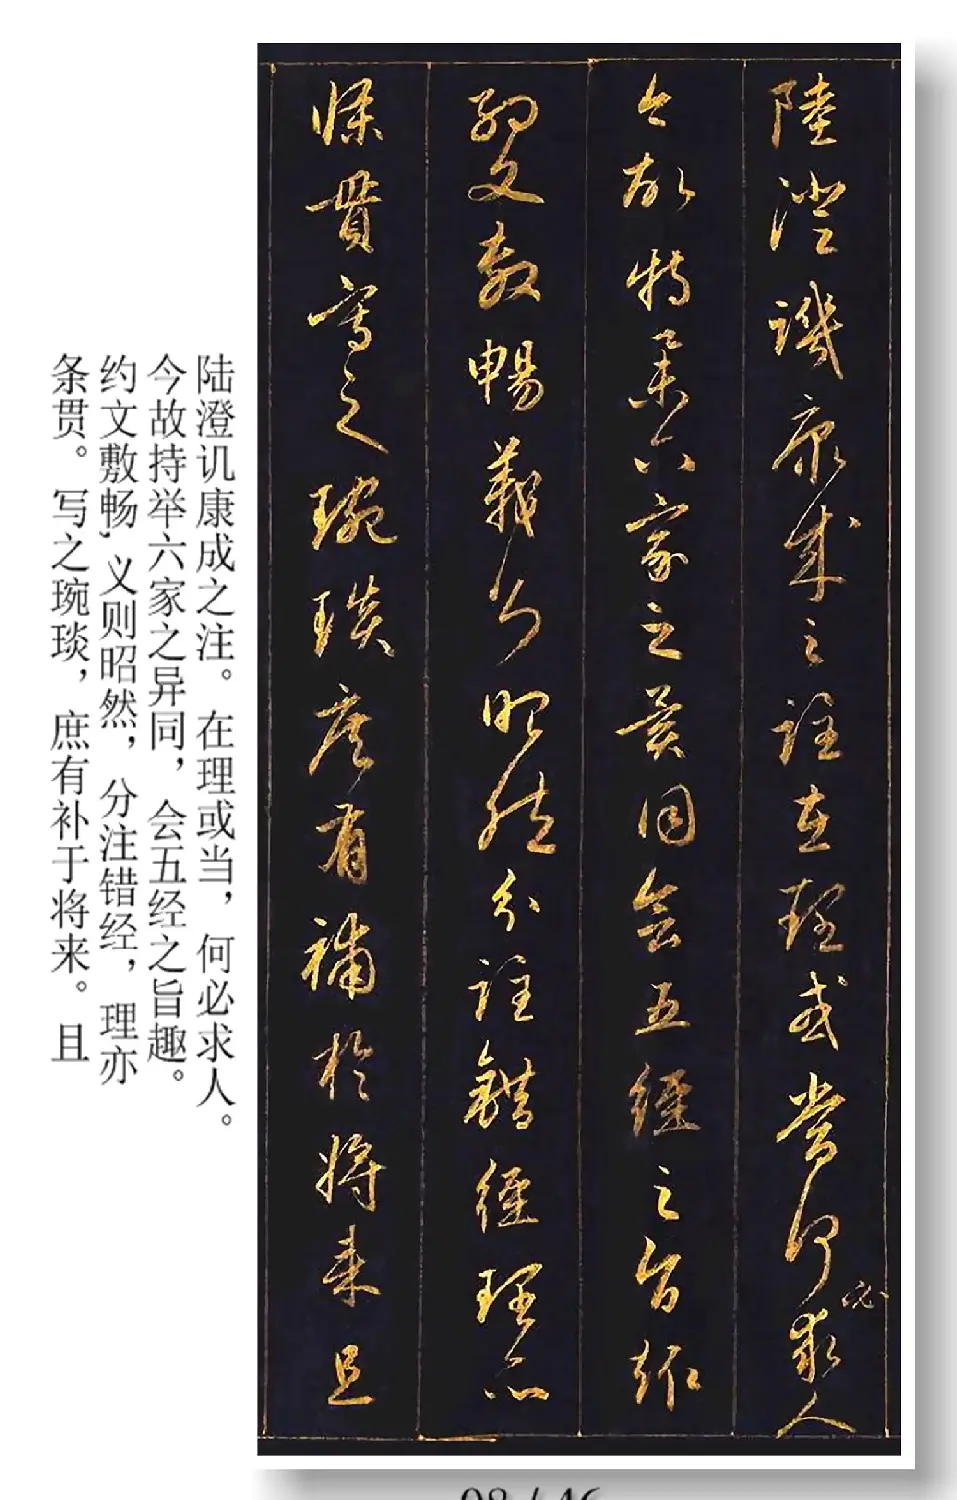 陸澄譏康成之註在理或當何必求人
今故特舉六家之異同會五經之旨趣
約文敷暢義則昭然分註錯經理亦
條貫寫之琬琰庶有補於將來且
陆澄讥康成之注。在理或当，何必求人。
今故持举六家之异同，会五经之旨趣。
约文敷畅，义则昭然，分注错经，理亦
条贯。写之琬琰，庶有补于将来。且